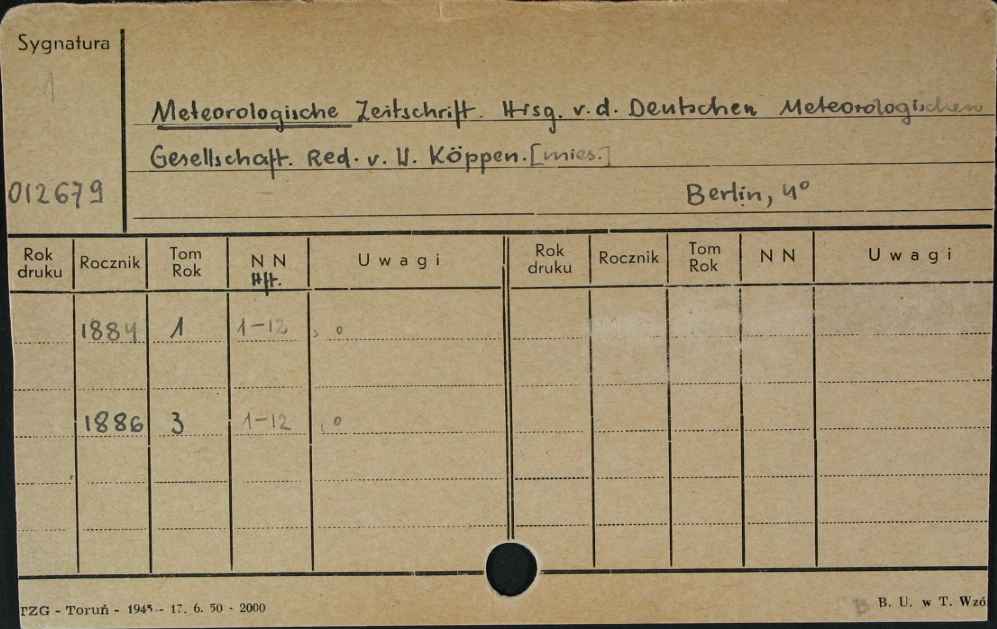 Sygnatura
1
Meteorologische Zeitschrift. Hrsg. v. d. Deutschen Meteorologischen
Gesellschaft. Red. v. W. Köppen. [mies.]
012679
Berlin, 4°
Rok druku Rocznik Tom Rok N N Hft. Uwagi Rok druku Rocznik Tom Rok N N Uwagi
1884 1 1-12 , o
1886 3 1-12 , o
TZG - Toruń - 1945 - 17. 6. 50 - 2000 B. U. w T. Wzó